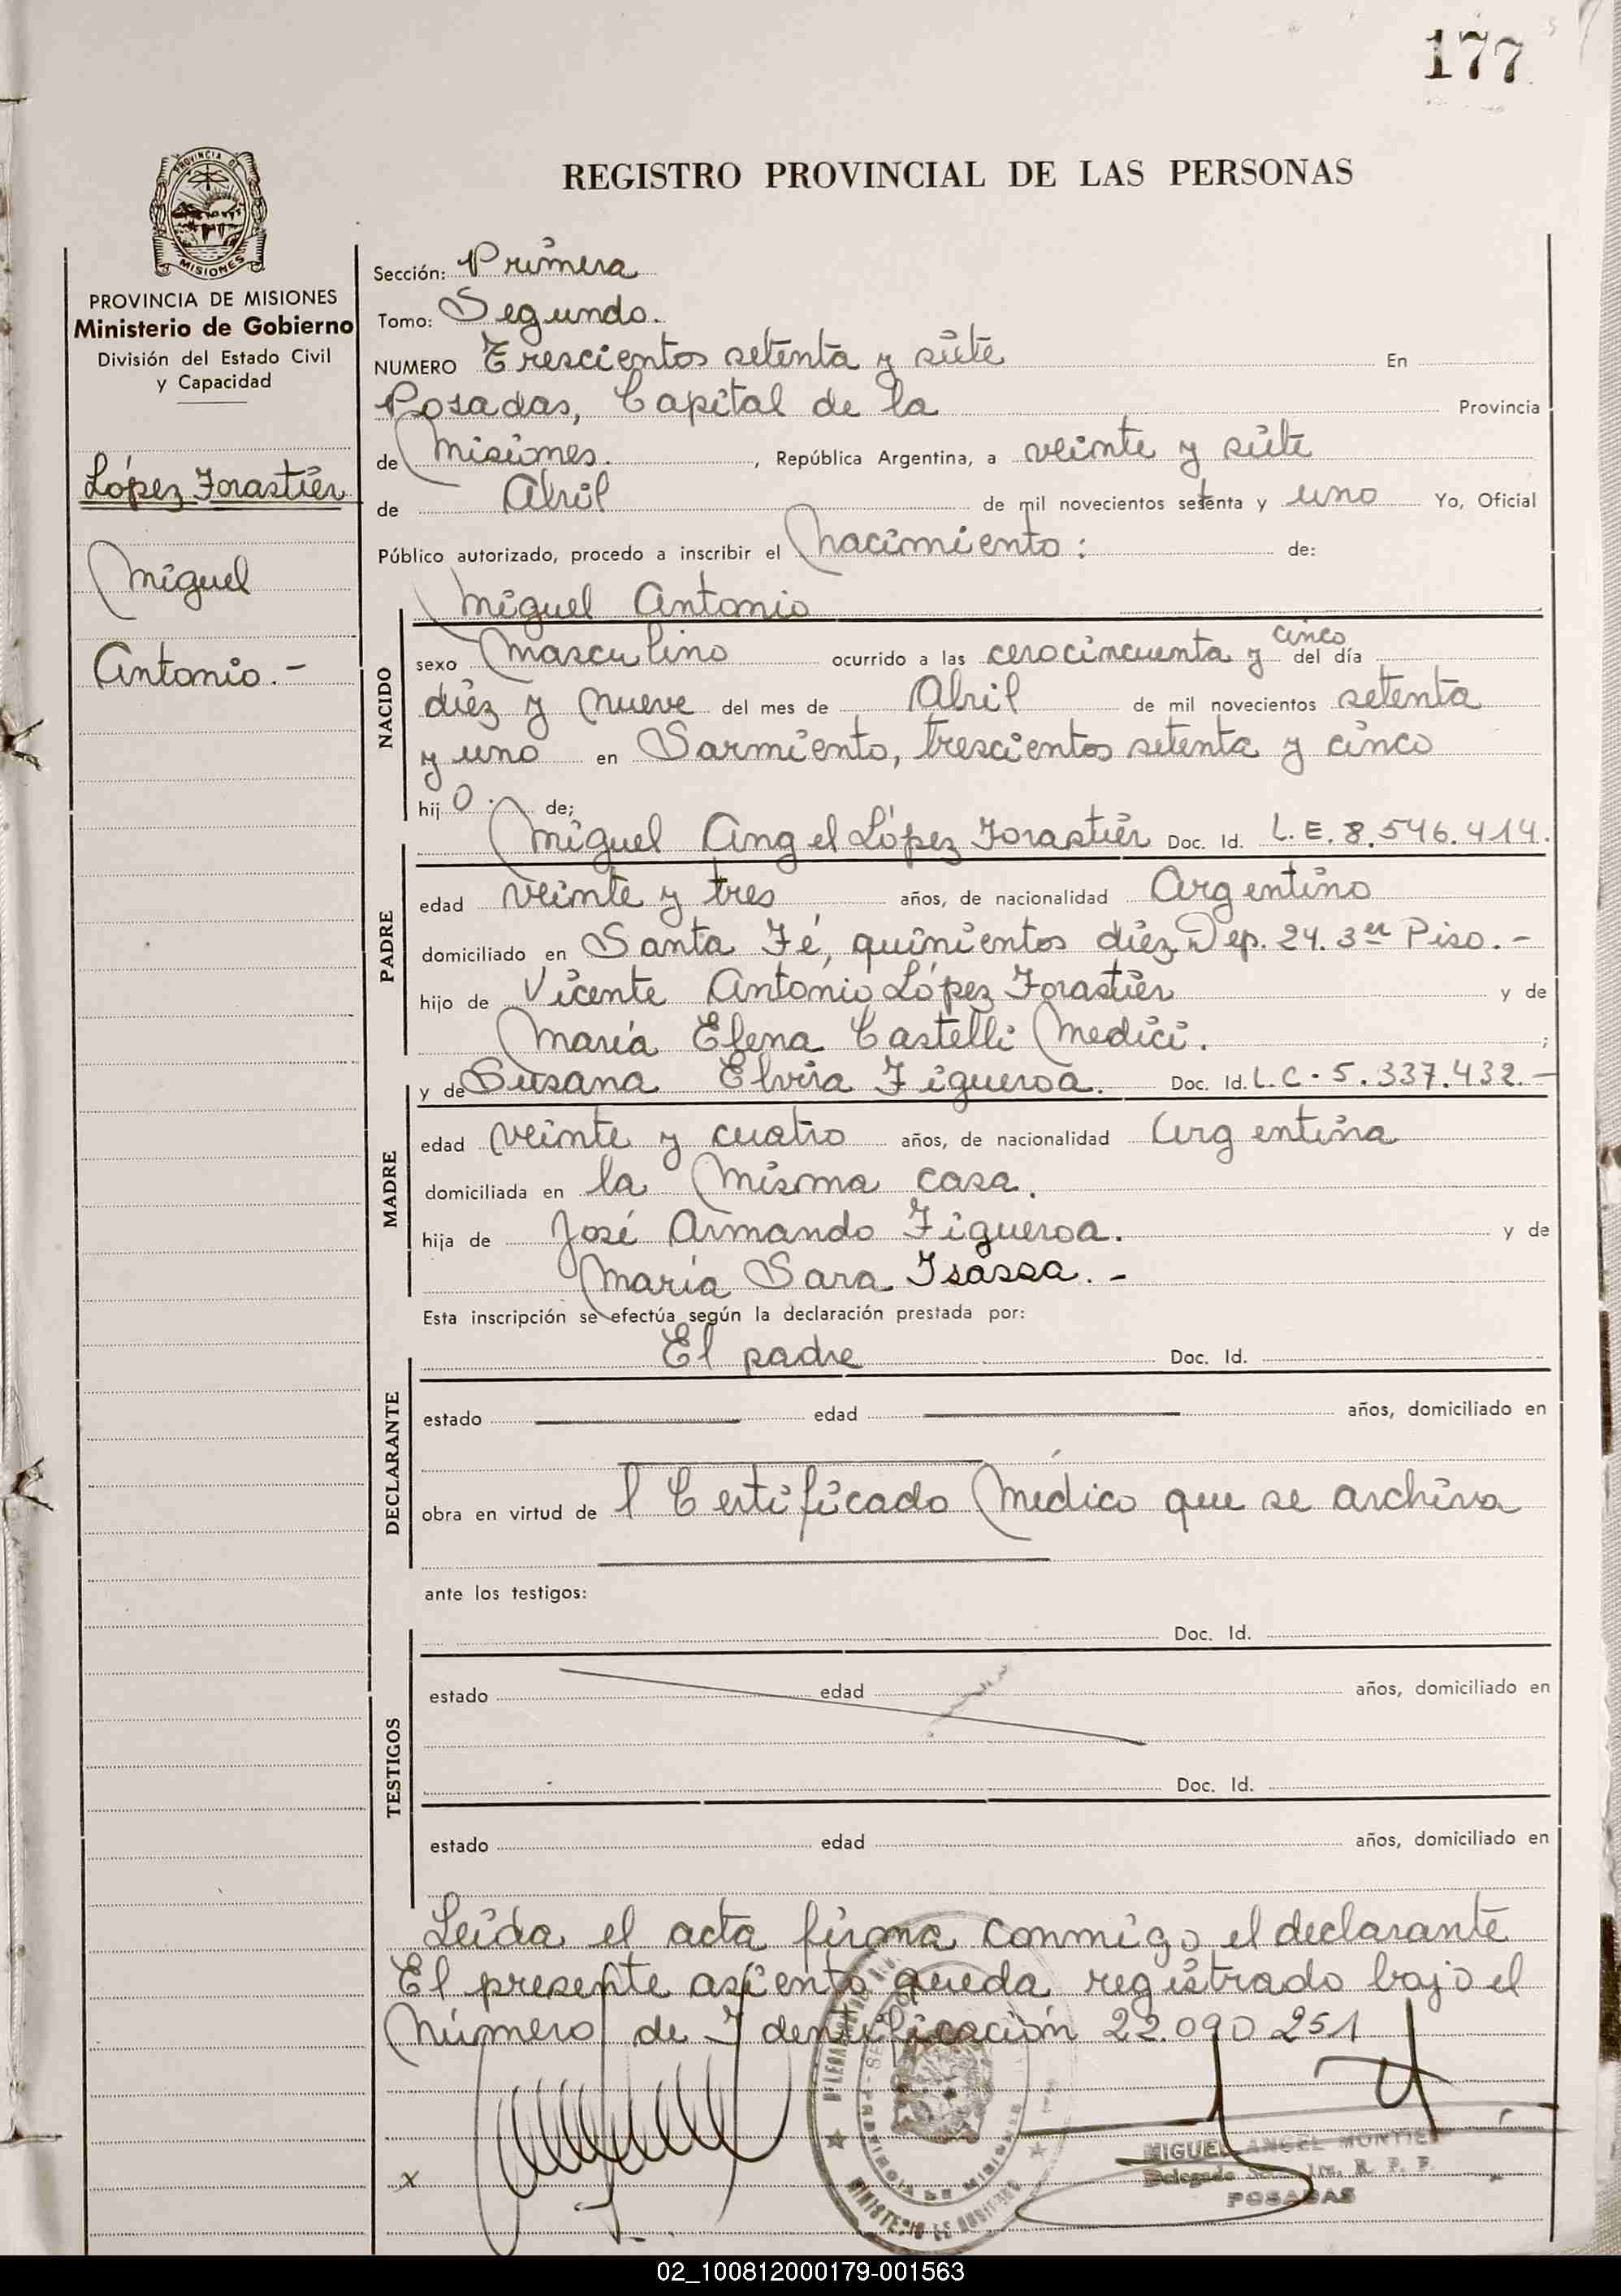 177
PROVINCIA DE
MISIONES
REGISTRO PROVINCIAL DE LAS PERSONAS
PROVINCIA DE MISIONES
Ministerio de Gobierno
División del Estado Civil
y Capacidad
López Forastiér
Miguel
Antonio.-
Sección: Primera
Tomo: Segundo.
NUMERO Trescientos setenta y siete En
Posadas, Capital de la Provincia
de Misiones. , República Argentina, a veinte y siete
de Abril de mil novecientos setenta y uno Yo, Oficial
Público autorizado, procedo a inscribir el Nacimiento: de:
Miguel Antonio
NACIDO
sexo Masculino ocurrido a las cerocincuenta y cinco del día
diez y nueve del mes de Abril de mil novecientos setenta
y uno en Sarmiento, trescientos setenta y cinco
hij o. de;
Miguel Angel López Forastiér Doc. Id. L.E. 8.546.414.
PADRE
edad veinte y tres años, de nacionalidad Argentino
domiciliado en Santa Fé, quinientos diez Dep. 24. 3er Piso.-
hijo de Vicente Antonio López Forastiér y de
María Elena Castelli Medici. ;
y de Susana Elvira Figueroa. Doc. Id. L.C. 5.337.432.-
MADRE
edad veinte y cuatro años, de nacionalidad Argentina
domiciliada en la misma casa.
hija de José Armando Figueroa. y de
María Sara Isassa.-
Esta inscripción se efectúa según la declaración prestada por:
El padre Doc. Id.
DECLARANTE
estado edad años, domiciliado en
obra en virtud de l Certificado Médico que se archiva
ante los testigos:
Doc. Id.
TESTIGOS
estado edad años, domiciliado en
Doc. Id.
estado edad años, domiciliado en
Leída el acta firma conmigo el declarante
El presente asiento queda registrado bajo el
Número de Identificación 22.090 251
x
PROVINCIA DE MISIONES
MINISTERIO DE GOBIERNO
MIGUEL ANGEL MONTIEL
Delegado R. P. P.
POSADAS
02_100812000179-001563